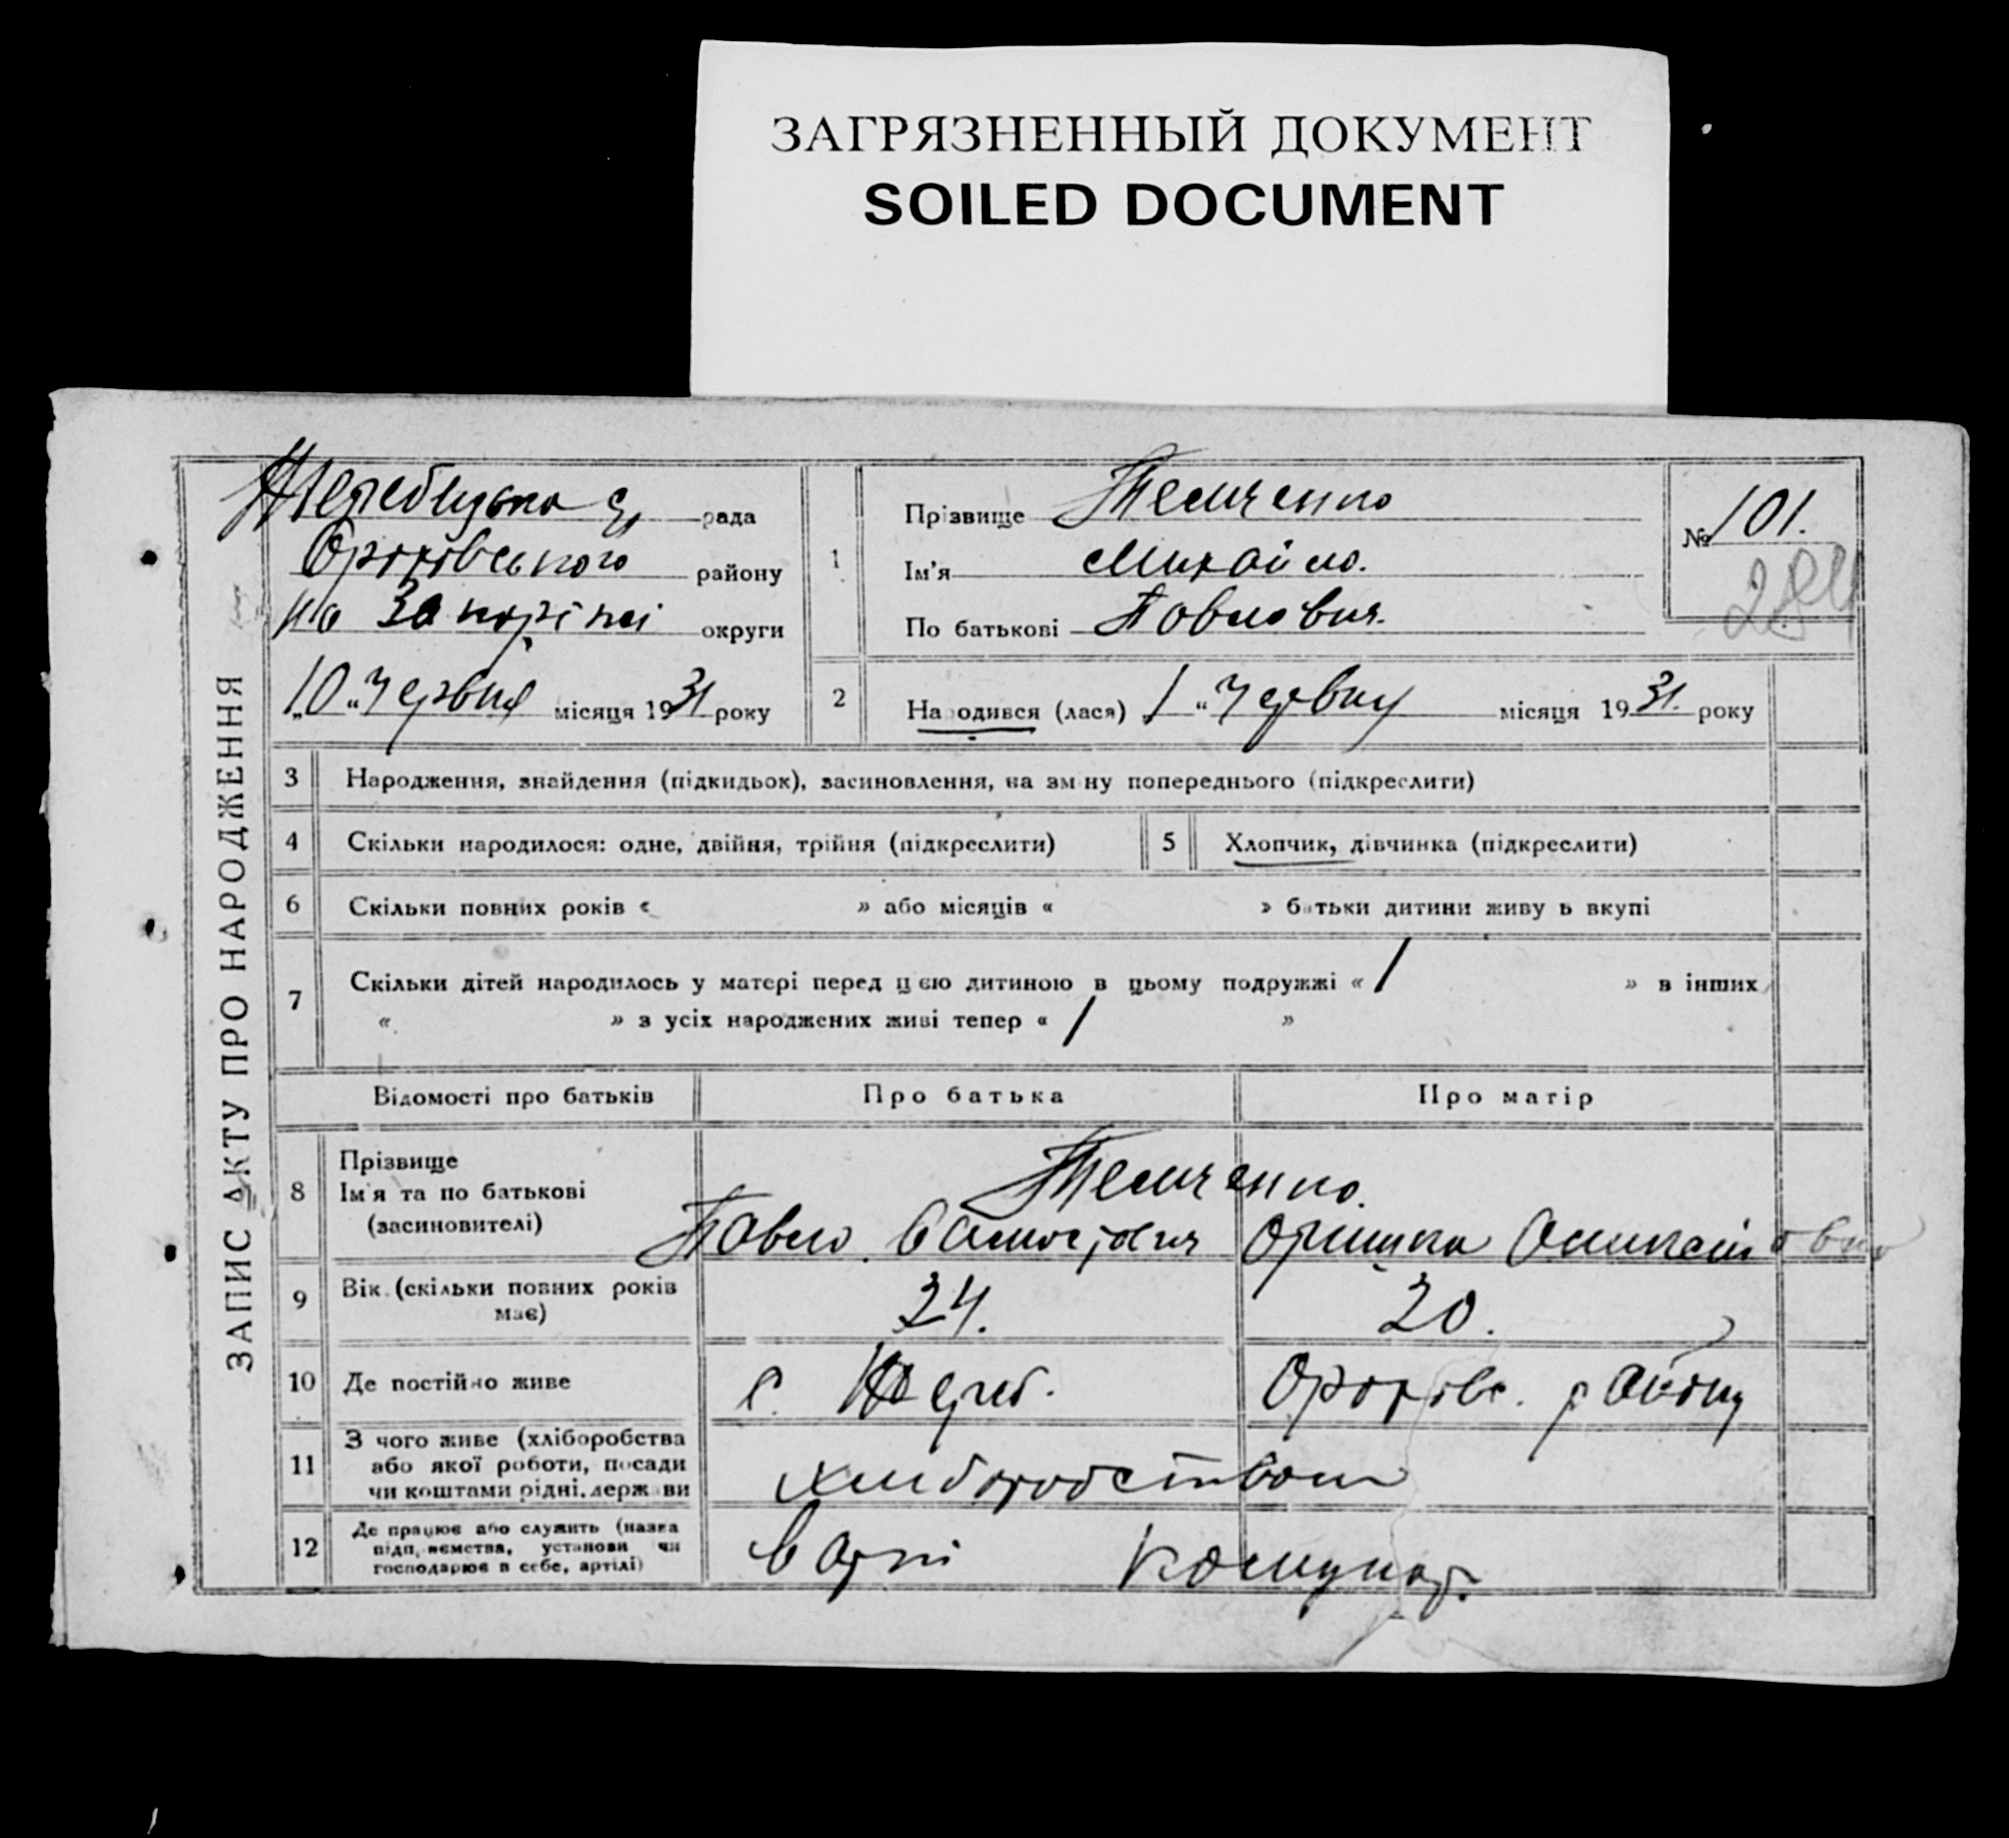 ЗАГРЯЗНЕННЫЙ ДОКУМЕНТ
SOILED DOCUMENT
ЗАПИС АКТУ ПРО НАРОДЖЕННЯ
Жеребецька рада
Оріхівського району
на Запоріжжі округи
„10“ Червня місяця 1931 року
1 Прізвище Темченко
Ім'я Михайло.
По батькові Павлович.
№ 101.
284
2 Народився (лася) 1 “ Червня місяця 1931. року
3 Народження, знайдення (підкидьок), засиновлення, на зміну попереднього (підкреслити)
4 Скільки народилося: одне, двійня, трійня (підкреслити)
5 Хлопчик, дівчинка (підкреслити)
6 Скільки повних років « » або місяців « » батьки дитини живуть вкупі
7 Скільки дітей народилось у матері перед цією дитиною в цьому подружжі « 1 » в інших
« » з усіх народжених живі тепер « 1 »
Відомості про батьків Про батька Про матір
8 Прізвище
Ім'я та по батькові
(засиновителі)
Темченко.
Павло Оришка
9 Вік (скільки повних років
має)
24. 20.
10 Де постійно живе с. Жереб. Оріхівс. району
11 З чого живе (хліборобства
або якої роботи, посади
чи коштами рідні, держави
хліборобством
12 Де працює або служить (назва
підприємства, установи чи
господарює в себе, артілі)
в арт Комунар.